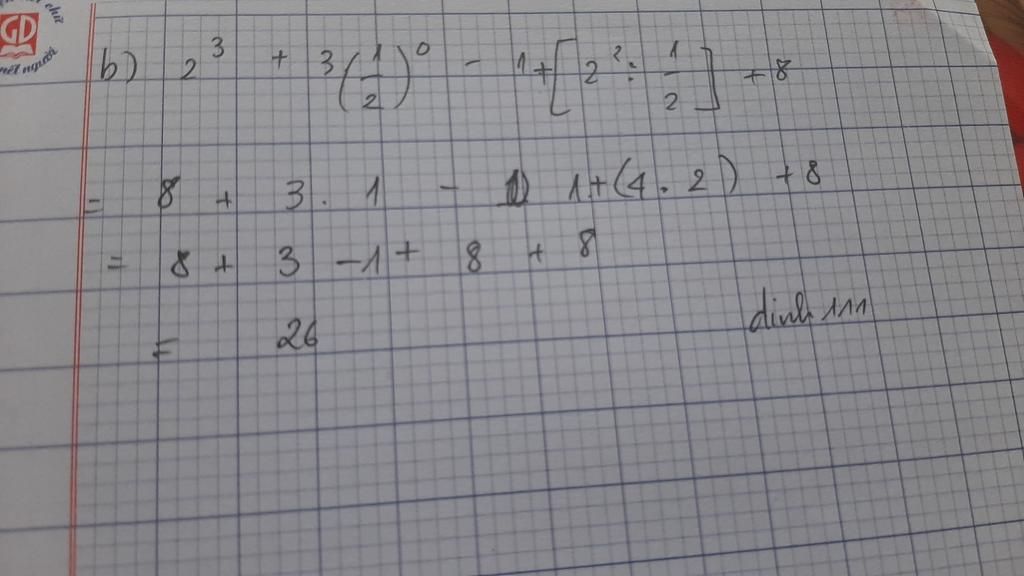 GD
nét người
b) 2³ + 3(1/2)⁰ - 1+[2² : 1/2] + 8
= 8 + 3 . 1 - 1+(4 . 2) + 8
= 8 + 3 - 1 + 8 + 8
= 26
dinh 111